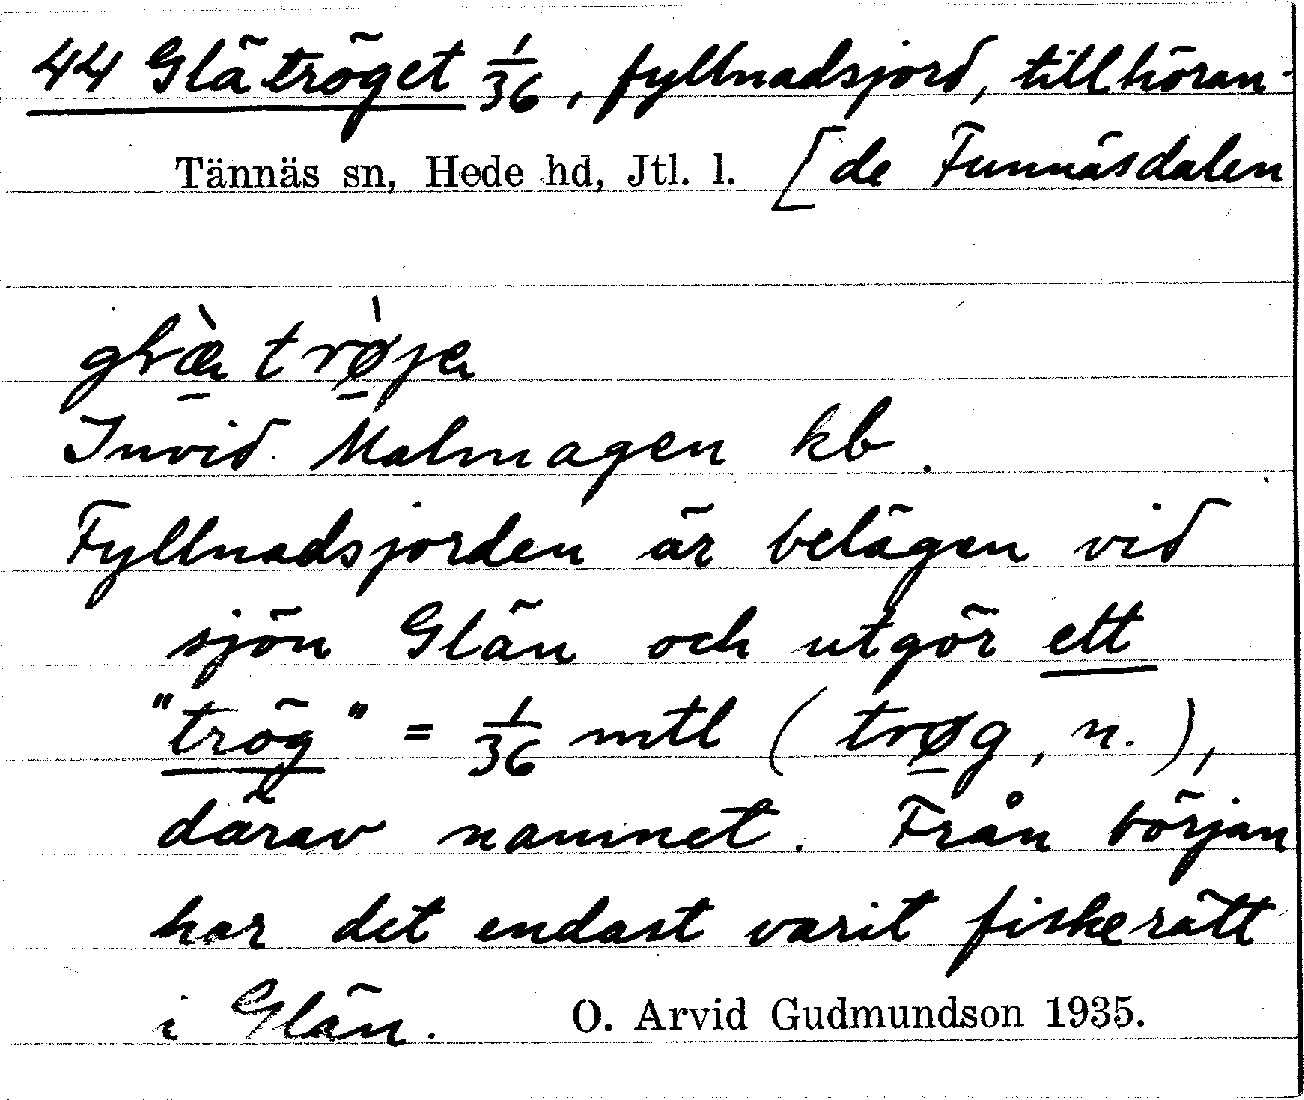 44 Glätröget 1/36, fyllnadsjord, tillhöran-
Tännäs sn, Hede hd, Jtl. l. [de Funnäsdalen
Invid Malmagen kb.
Fyllnadsjorden är belägen vid
sjön Glän och utgör ett
"trög" = 1/36 mtl (trø̱g, n.),
därav namnet. Från början
har det endast varit fiskerätt
i Glän. O. Arvid Gudmundson 1935.